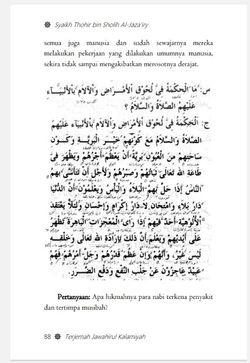 Syaikh Thohir bin Sholih Al-Jaza'iry
semua juga manusia dan sudah sewajarnya mereka
melakukan pekerjaan yang dilakukan umumnya manusia,
sekira tidak sampai mengakibatkan merosotnya derajat.
س: مَا الْحِكْمَةُ فِيْ لُحُوْقِ الْأَمْرَاضِ وَالْآلَامِ بِالْأَنْبِيَاءِ
عَلَيْهِمُ الصَّلَاةُ وَالسَّلَامُ ؟
ج: الْحِكْمَةُ فِيْ لُحُوْقِ الْأَمْرَاضِ وَالْآلَامِ بِالْأَنْبِيَاءِ عَلَيْهِمُ
الصَّلَاةُ وَالسَّلَامُ مَعَ كَوْنِهِمْ خَيْرَ الْبَرِيَّةِ وَكَوْنِ
سَاحَتِهِمْ مِنَ الْعُيُوْبِ بَرِيَّةً: أَنْ يَعْظُمَ أَجْرُهُمْ وَيَظْهَرَ فِيْ
طَاعَةِ اللهِ تَعَالَى ثَبَاتُهُمْ وَصَبْرُهُمْ وَلِأَجْلِ أَنْ يَتَأَسَّى بِهِمُ
النَّاسُ إِذَا حَلَّ بِهِمُ الْبَلَاءُ وَالْبَأْسُ وَيَعْلَمُوْنَ أَنَّ الدُّنْيَا
دَارُ بَلَاءٍ وَامْتِحَانٍ لَا دَارُ إِكْرَامٍ وَإِحْسَانٍ وَلِئَلَّا يَعْتَقِدَ
الْأُلُوْهِيَّةَ أَحَدٌ فِيْهِمْ إِذَا رَأَى الْمُعْجِزَاتِ الْبَاهِرَةَ تَظْهَرُ
عَلَى أَيْدِيْهِمْ وَيَعْلَمَ أَنَّ ذَلِكَ بِإِرَادَةِ اللهِ تَعَالَى وَخَلْقِهِ
لَيْسَ غَيْرُ، وَأَنَّهُمْ وَإِنْ عَظُمَ قَدْرُهُمْ وَجَلَّ أَمْرُهُمْ فَهُمْ
عَبِيْدٌ عَاجِزُوْنَ عَنْ جَلْبِ النَّفْعِ وَدَفْعِ الضَّرَرِ
Pertanyaan: Apa hikmahnya para nabi terkena penyakit
dan tertimpa musibah?
88 Terjemah Jawahirul Kalamiyah